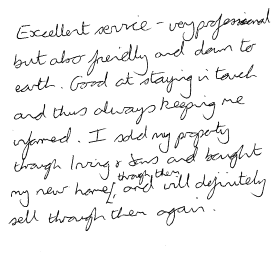 Excellent service - very professional
but also freindly and down to
earth. Good at staying in touch
and thus always keeping me
informed. I sold my property
through Irving & Sons and bought
my new home through them, and will definitely
sell through them again.